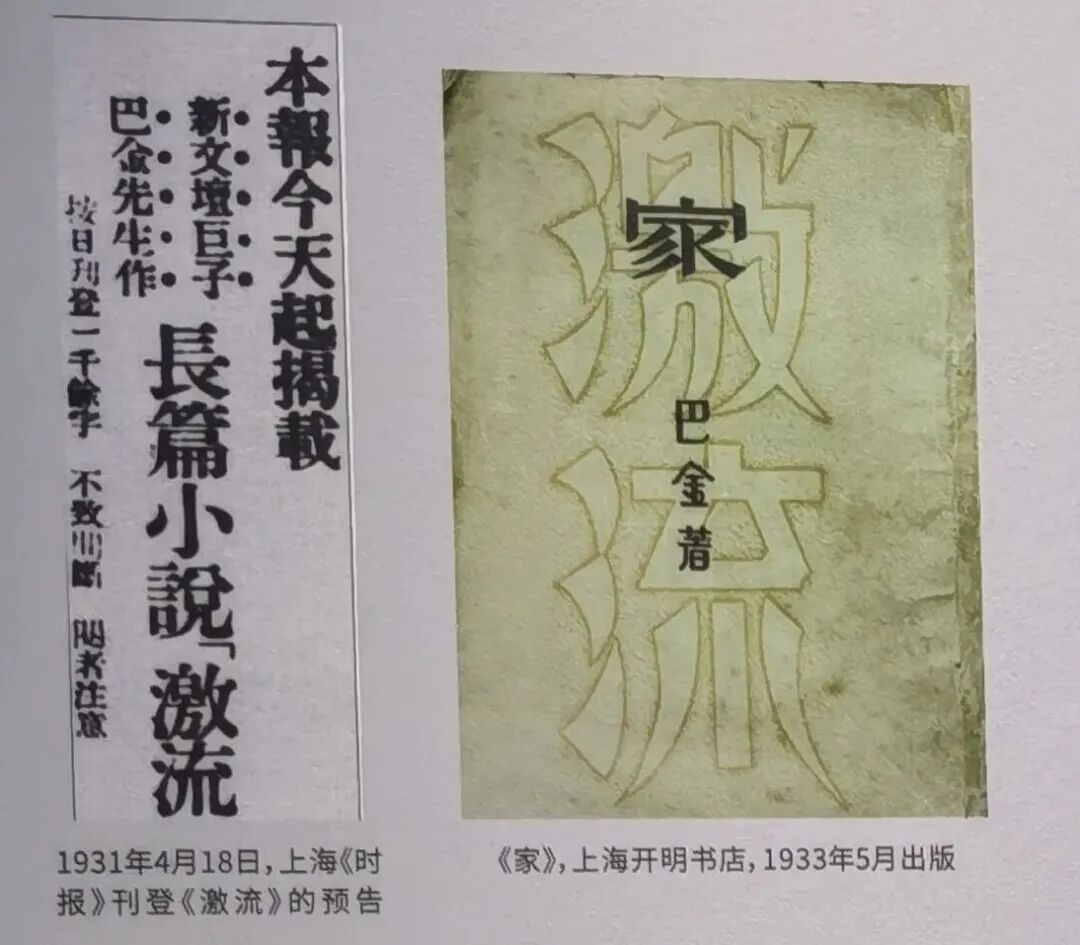 本報今天起揭載
新文壇巨子
巴金先生作
長篇小說「激流
按日刊登一千餘字 不致間斷 閱者注意
激流
家
巴金著
1931年4月18日，上海《时
报》刊登《激流》的预告
《家》，上海开明书店，1933年5月出版